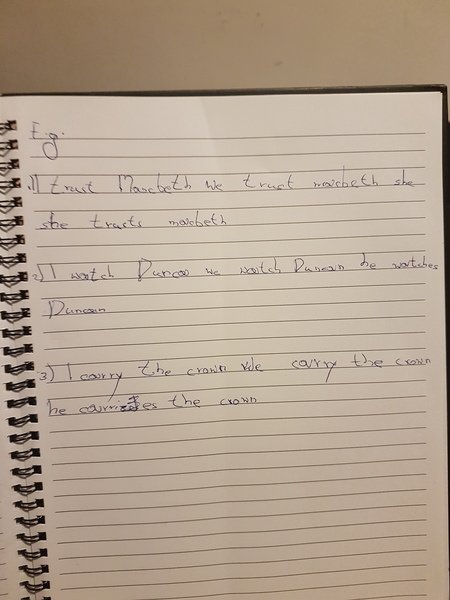 E.g.
1) I trust Macbeth we trust macbeth she
she trusts macbeth
2) I watch Duncan we watch Duncan he watches
Duncan
3) I carry the crown We carry the crown
he carries the crown